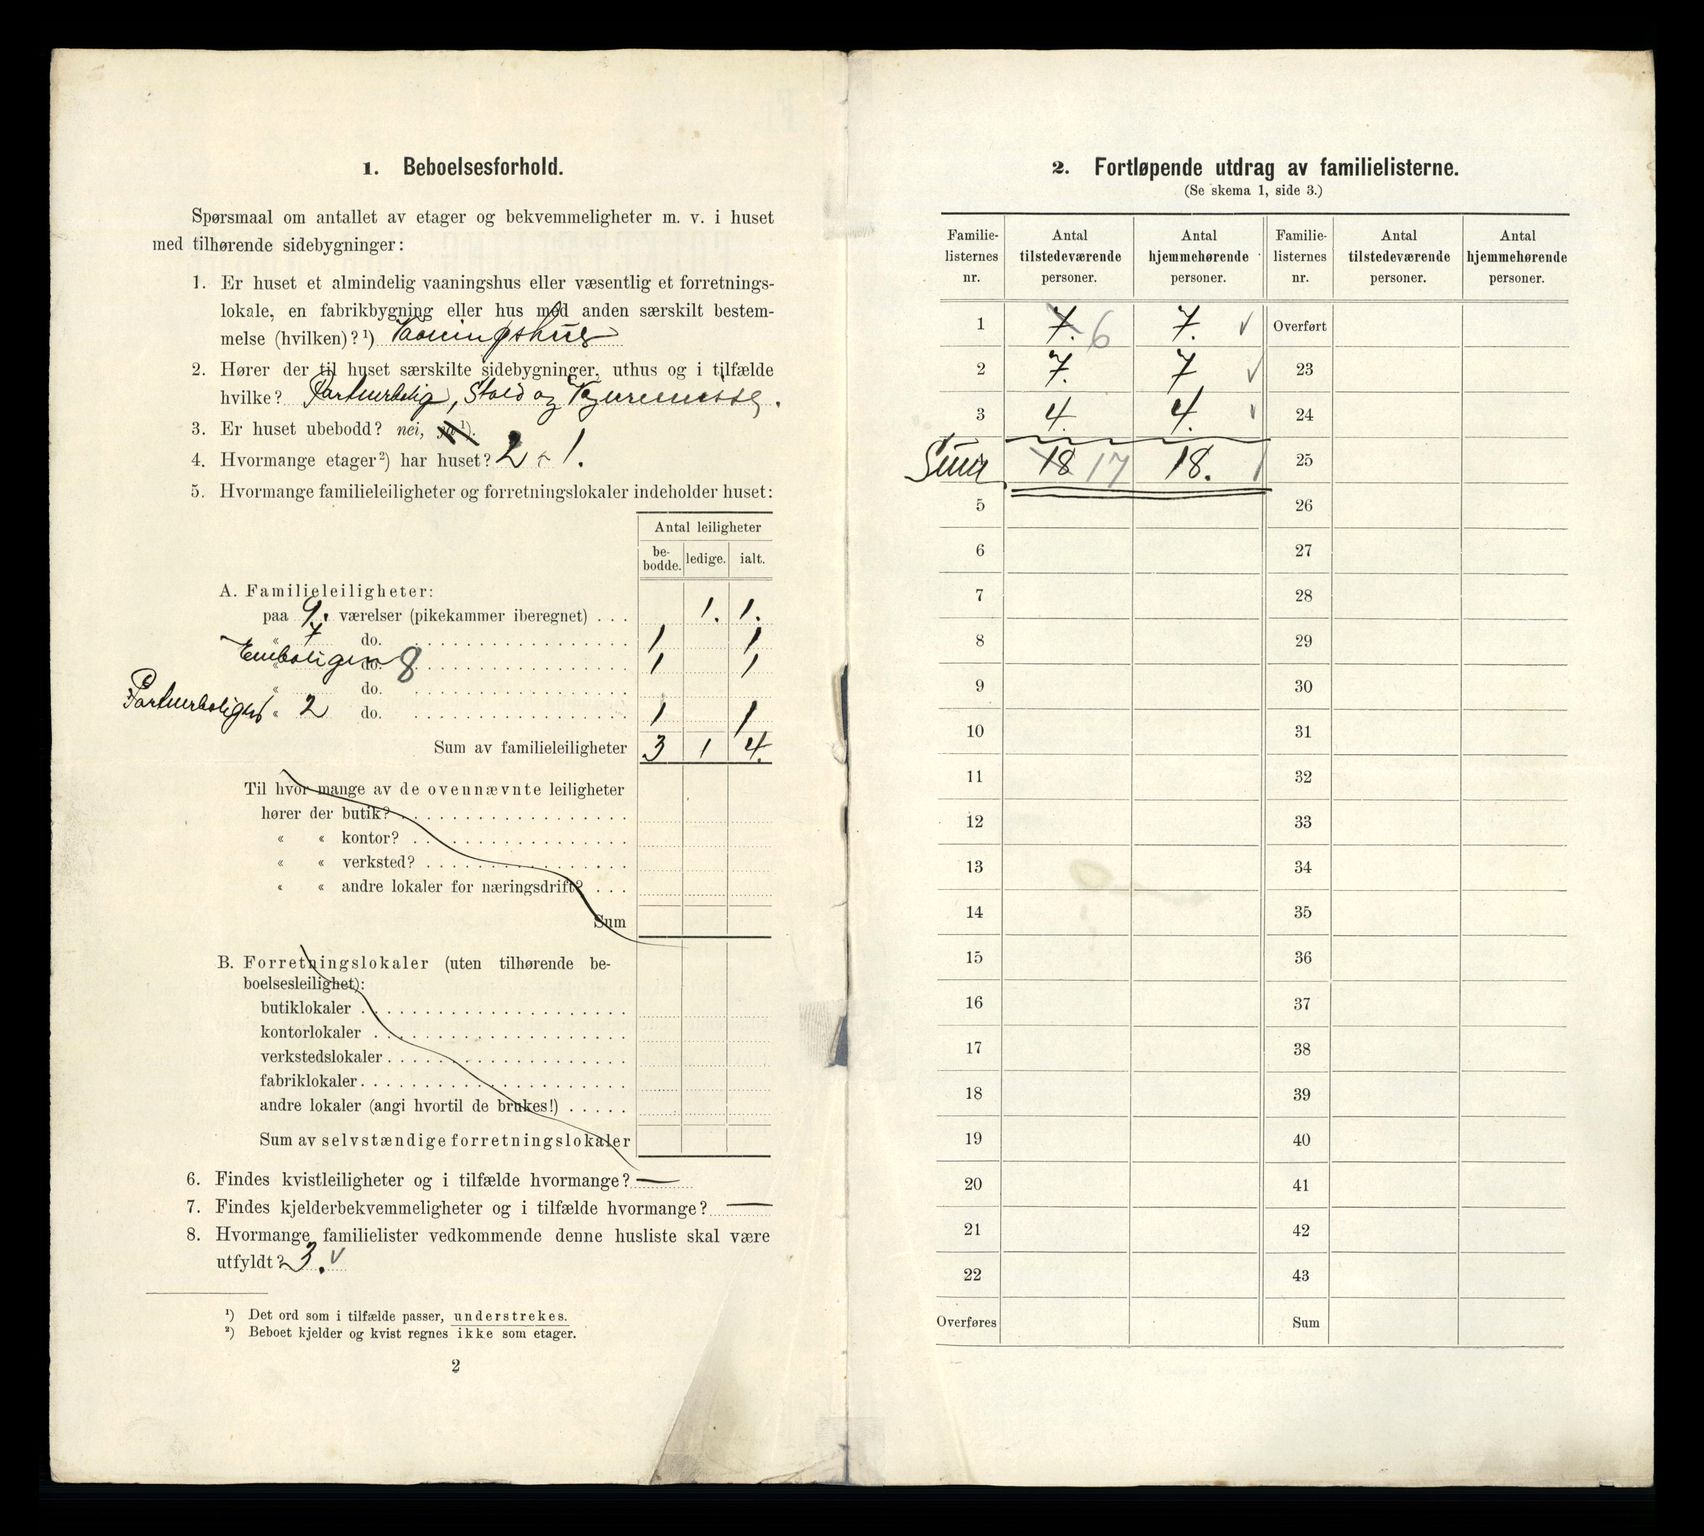 1. Beboelsesforhold.
Spørsmaal om antallet av etager og bekvemmeligheter m. v. i huset
med tilhørende sidebygninger:
1. Er huset et almindelig vaaningshus eller væsentlig et forretnings-
lokale, en fabrikbygning eller hus med anden særskilt bestem-
melse (hvilken)?¹) Vaaningshus
2. Hører der til huset særskilte sidebygninger, uthus og i tilfælde
hvilke? Portnerbolig, Stald og
3. Er huset ubebodd? nei, ja¹).
4. Hvormange etager²) har huset? 2 - 1.
5. Hvormange familieleiligheter og forretningslokaler indeholder huset:
Antal leiligheter
be-bodde. ledige. ialt.
A. Familieleiligheter:
paa 9. værelser (pikekammer iberegnet) . . . 1. 1.
„ 7 do. 1 1
Eneboligen do. 8 1 1
„ do.
Portnerboligen „ 2 do. 1 1
Sum av familieleiligheter 3 1 4.
Til hvor mange av de ovennævnte leiligheter
hører der butik?
« « kontor?
« « verksted?
« « andre lokaler for næringsdrift?
Sum
B. Forretningslokaler (uten tilhørende be-
boelsesleilighet):
butiklokaler
kontorlokaler
verkstedslokaler
fabriklokaler
andre lokaler (angi hvortil de brukes!)
Sum av selvstændige forretningslokaler
6. Findes kvistleiligheter og i tilfælde hvormange? —
7. Findes kjelderbekvemmeligheter og i tilfælde hvormange? —
8. Hvormange familielister vedkommende denne husliste skal være
utfyldt? 3. v
¹) Det ord som i tilfælde passer, understrekes.
²) Beboet kjelder og kvist regnes ikke som etager.
2
2. Fortløpende utdrag av familielisterne.
(Se skema 1, side 3.)
Familie-listernes nr. Antal tilstedeværende personer. Antal hjemmehørende personer. Familie-listernes nr. Antal tilstedeværende personer. Antal hjemmehørende personer.
1 7. 6 7. v Overført
2 7. 7 v 23
3 4. 4. v 24
Sum 18 17 18. 25
5 26
6 27
7 28
8 29
9 30
10 31
11 32
12 33
13 34
14 35
15 36
16 37
17 38
18 39
19 40
20 41
21 42
22 43
Overføres Sum